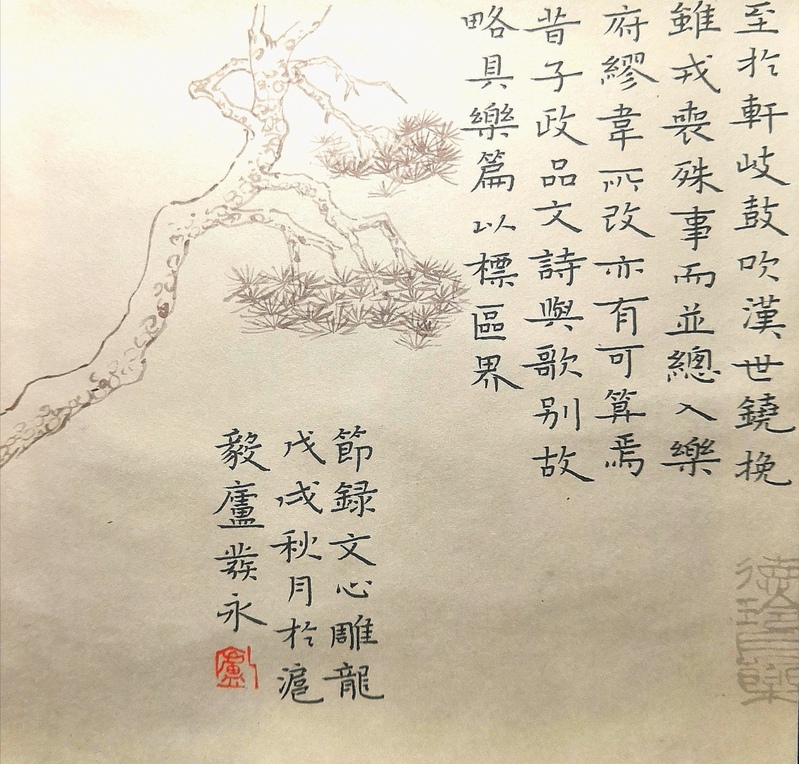 至於軒岐鼓吹漢世鐃挽
雖戎喪殊事而並總入樂
府繆韋所改亦有可算焉
昔子政品文詩與歌别故
略具樂篇以標區界
節録文心雕龍
戊戌秋月於滬
毅廬永